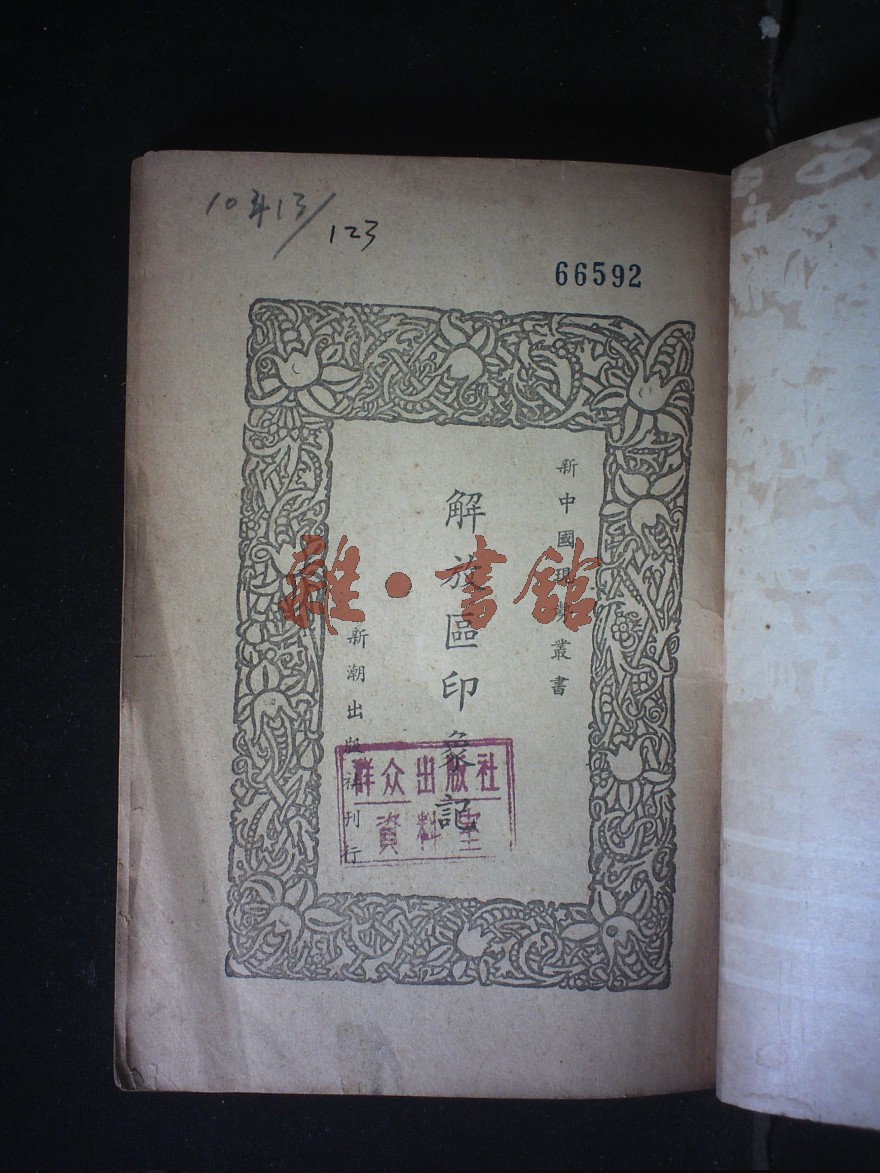 66592
123
新中國現勢叢書
解放區印象記
新潮出版社刊行
群众出版社
資料室
雜·書館